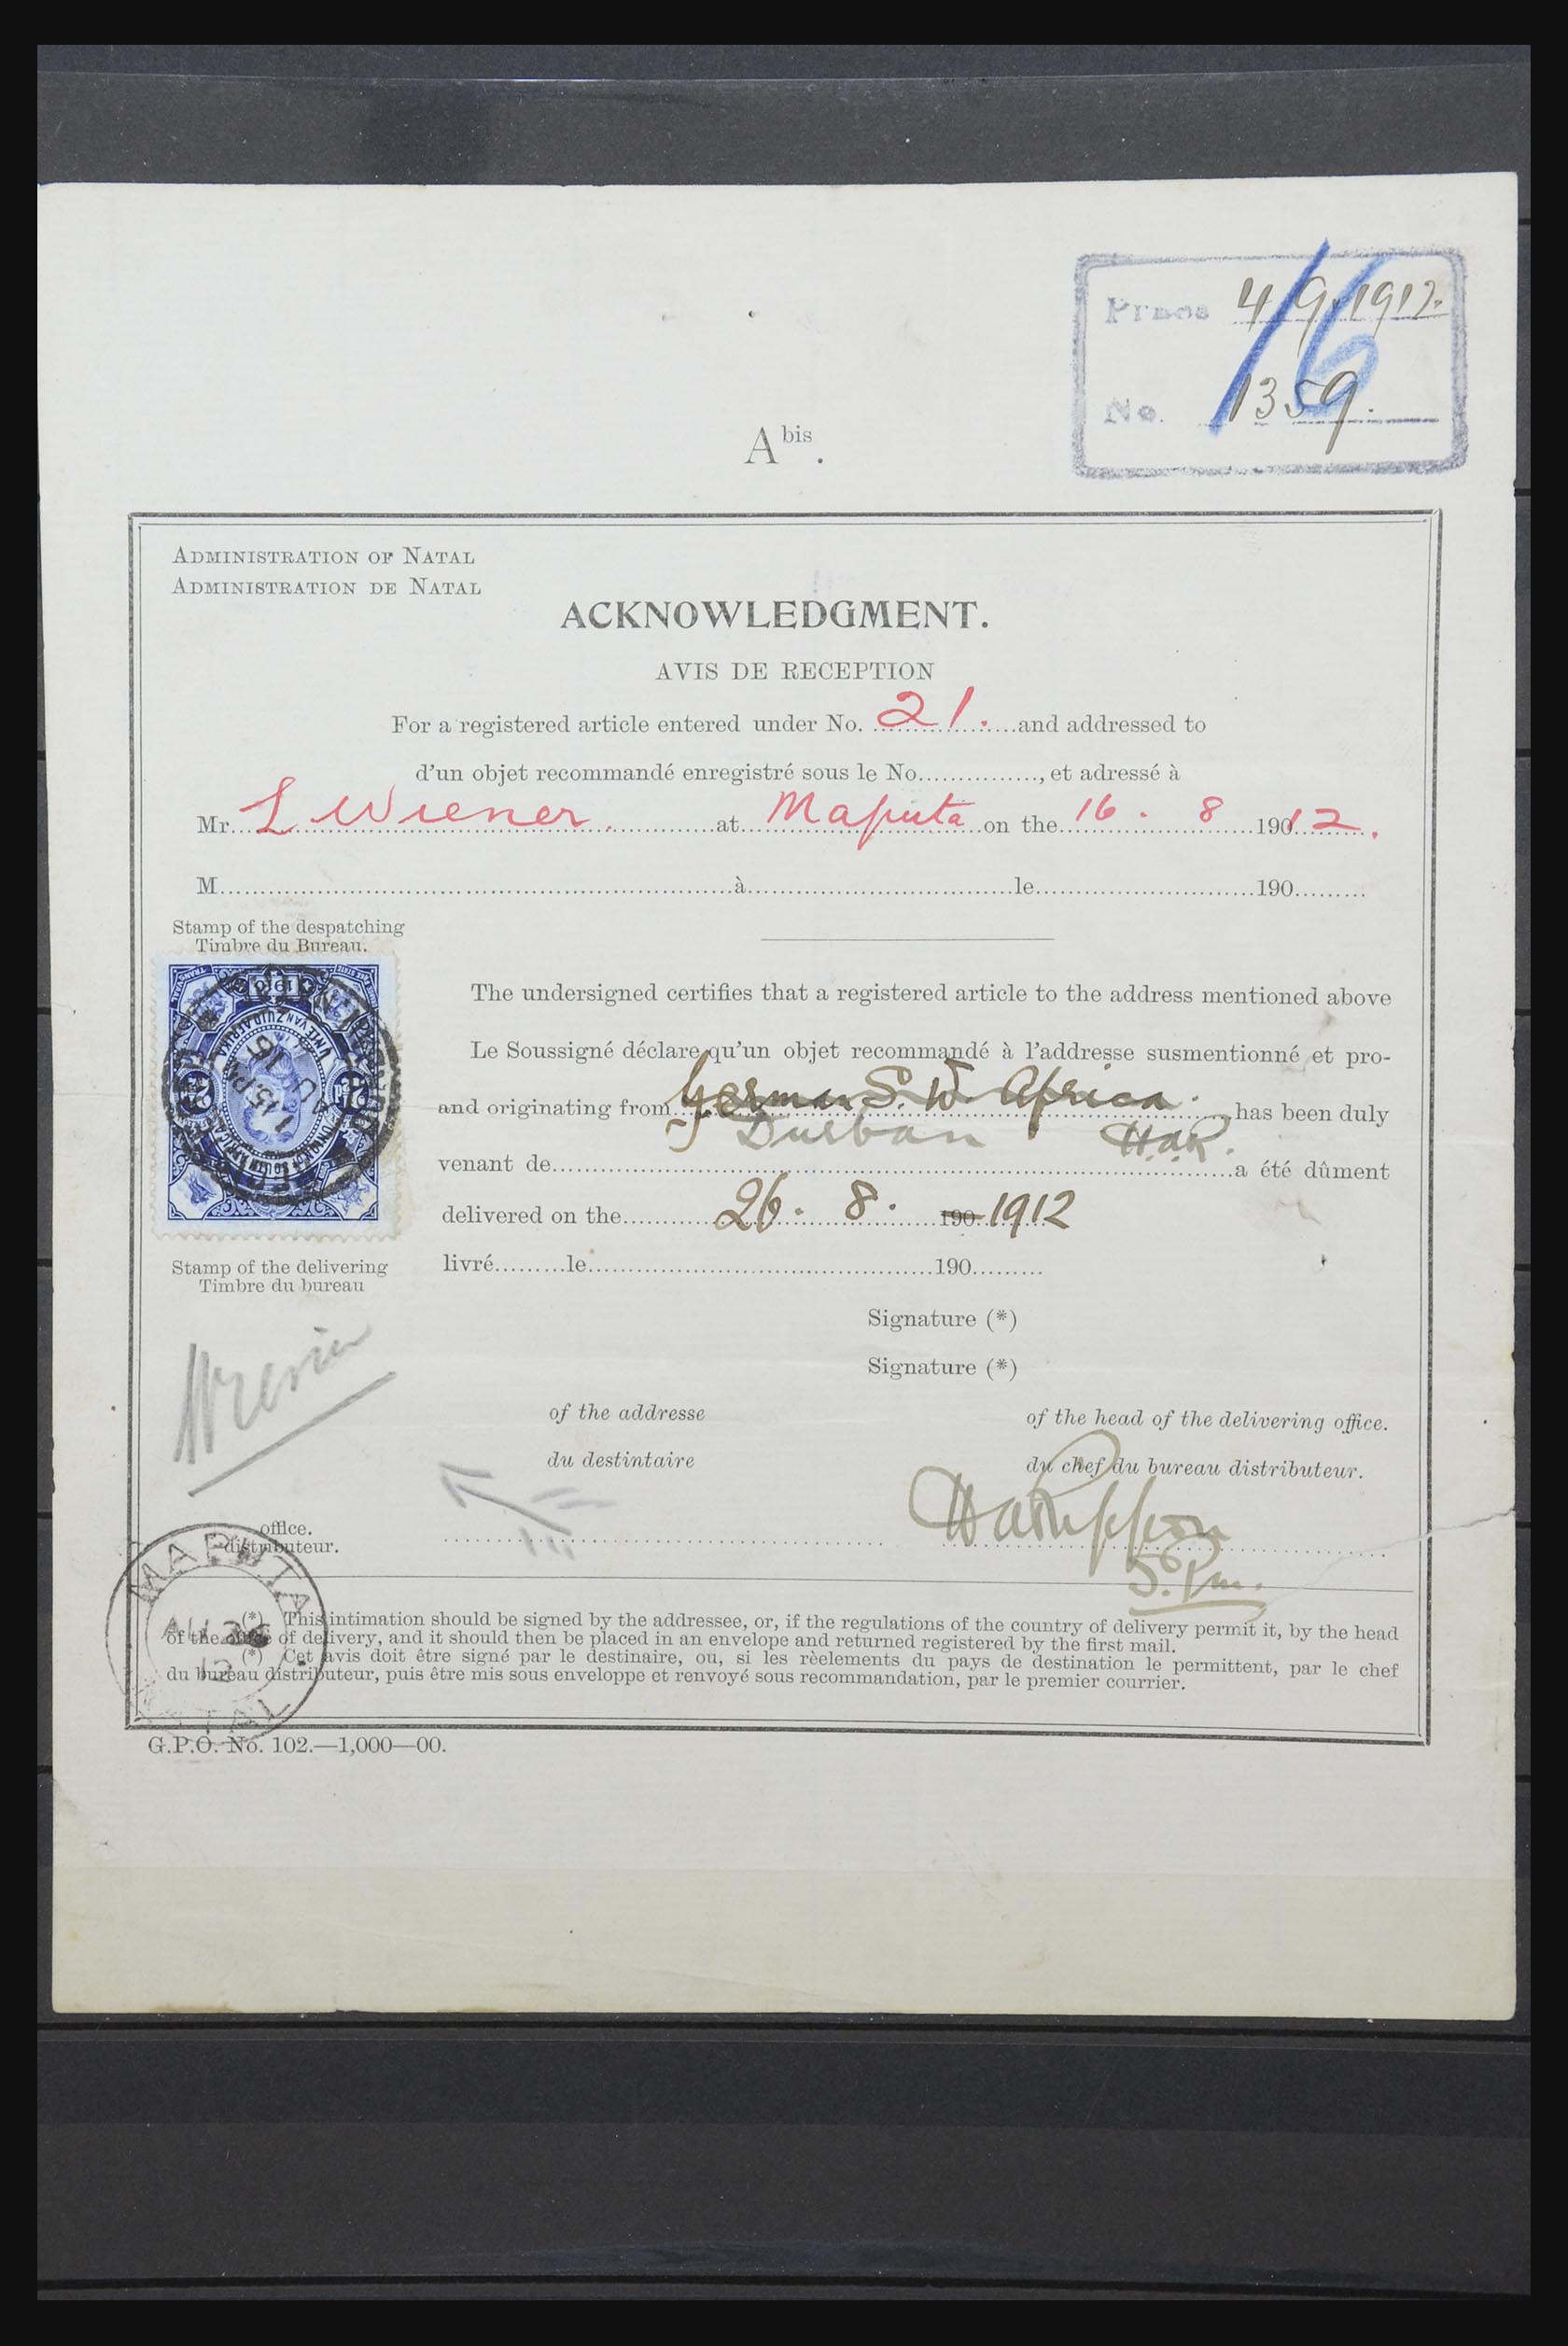 4/9/1912.
16
No. 1359.
A bis.
ADMINISTRATION OF NATAL
ADMINISTRATION DE NATAL
ACKNOWLEDGMENT.
AVIS DE RECEPTION
For a registered article entered under No. 21. and addressed to
d'un objet recommandé enregistré sous le No................, et adressé à
Mr. L Wiener. at Maputa on the 16. 8 1912.
M................à................le................190.........
Stamp of the despatching
Timbre du Bureau.
1910
UNIE VAN ZUID AFRIKA
UNION OF SOUTH AFRICA
The undersigned certifies that a registered article to the address mentioned above
Le Soussigné déclare qu'un objet recommandé à l'addresse susmentionné et pro-
and originating from German S. W. Africa. has been duly
Durban H.a.R.
venant de................a été dûment
delivered on the 26. 8. 190 1912
livré.........le................190.........
Stamp of the delivering
Timbre du bureau
Signature (*)
Signature (*)
of the addresse
of the head of the delivering office.
du destintaire
du chef du bureau distributeur.
office.
distributeur.
MAPUTA
AU 26
12
NATAL
(*) This intimation should be signed by the addressee, or, if the regulations of the country of delivery permit it, by the head
of the office of delivery, and it should then be placed in an envelope and returned registered by the first mail.
(*) Cet avis doit être signé par le destinaire, ou, si les rèelements du pays de destination le permittent, par le chef
du bureau distributeur, puis être mis sous enveloppe et renvoyé sous recommandation, par le premier courrier.
G.P.O. No. 102.—1,000—00.